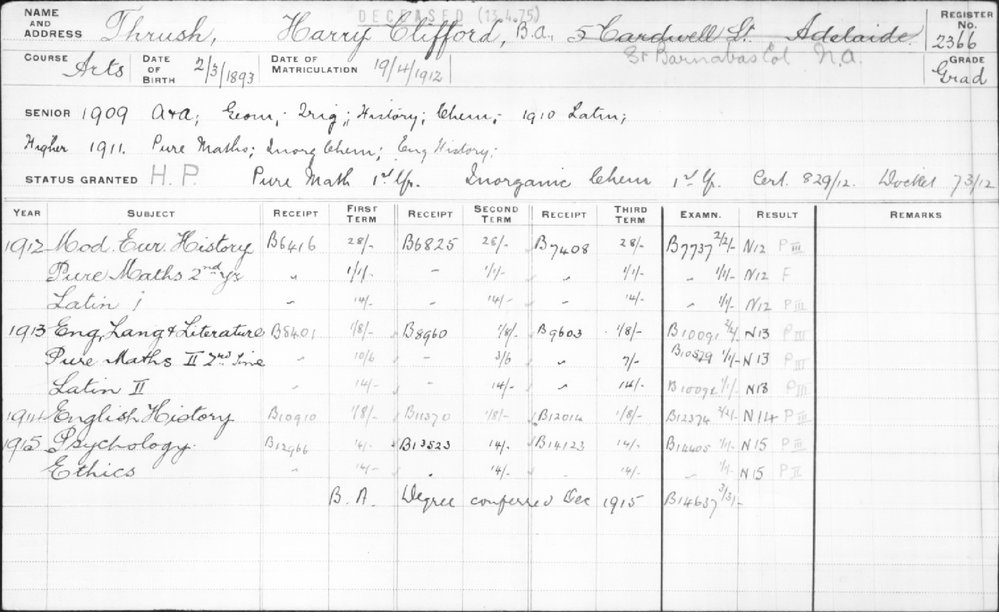 DECEASED (13.4.75)
NAME AND ADDRESS Thrush, Harry Clifford, B.A. 5 Cardwell St. Adelaide. REGISTER No. 2366
St Barnabas Col N.A.
COURSE Arts DATE OF BIRTH 2/3/1893 DATE OF MATRICULATION 19/4/1912 GRADE Grad
SENIOR 1909 A&A; Geom; Trig; History; Chem; 1910 Latin;
Higher 1911. Pure Maths; Inorg Chem; Eng History;
STATUS GRANTED H.P. Pure Math 1st Yr. Inorganic Chem 1st Yr. Cert. 829/12. Docket 73/12
YEAR SUBJECT RECEIPT FIRST TERM RECEIPT SECOND TERM RECEIPT THIRD TERM EXAMN. RESULT REMARKS
1912 Mod. Eur. History B6416 28/- B6825 28/- B7408 28/- B7737 2/2/- N12 P III
Pure Maths 2nd Yr " 1/1/- " 1/1/- " 1/1/- " 1/1/- N12 F
Latin i " 14/- " 14/- " 14/- " 1/1/- N12 P III
1913 Eng. Lang & Literature B8401 1/8/- B8960 1/8/- B9603 1/8/- B10091 2/2/- N13 P III
Pure Maths II 2nd Time " 10/6 " 3/6 " 7/- B10529 1/1/- N13 P III
Latin II " 14/- " 14/- " 14/- B10091 1/1/- N13 P III
1914 English History B10910 1/8/- B11370 1/8/- B12014 1/8/- B12374 2/2/- N14 P III
1915 Psychology B12966 14/- B13523 14/- B14123 14/- B14405 1/1/- N15 P III
Ethics " 14/- " 14/- " 14/- " 1/1/- N15 P II
B.A. Degree conferred Dec 1915 B14637 3/3/-